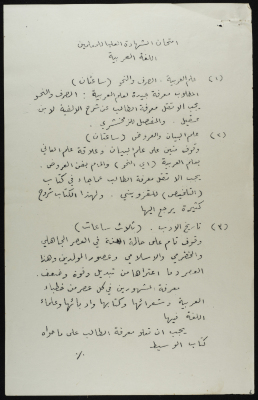 امتحان الشهادة العليا للمعلمين
اللغة العربية
(١) علم العربية. الصرف والنحو (ساعتان)
المطلوب معرفة جيدة لعلم العربية: الصرف والنحو
يجب الا تقل معرفة الطالب عن شرح الالفية لابن
عقيل. والمفصل للزمخشري.
(٢) علم البيان والعروض (ساعتان)
وقوف متين على علم البيان وعلاقة علم المعاني
بعلم العربية (اي النحو) والمام بفن العروض.
يجب الا تقل معرفة الطالب عما جاء في كتاب
(التلخيص) للقزويني. ولهذا الكتاب شروح
كثيرة يرجع اليها
(٣) تاريخ الادب. (ثلاث ساعات)
وقوف تام على حالة اللغة في العصر الجاهلي
والخضرمي والاسلامي وعصور المولدين وهذا
العصر وما اعتراها من تبديل وقوة وضعف.
معرفة المشهورين في كل عصر من خطباء
العربية وشعرائها وكتابها وادبائها وعلماء
اللغة فيها
يجب ان تعلو معرفة الطالب على ما حواه
كتاب الوسيط